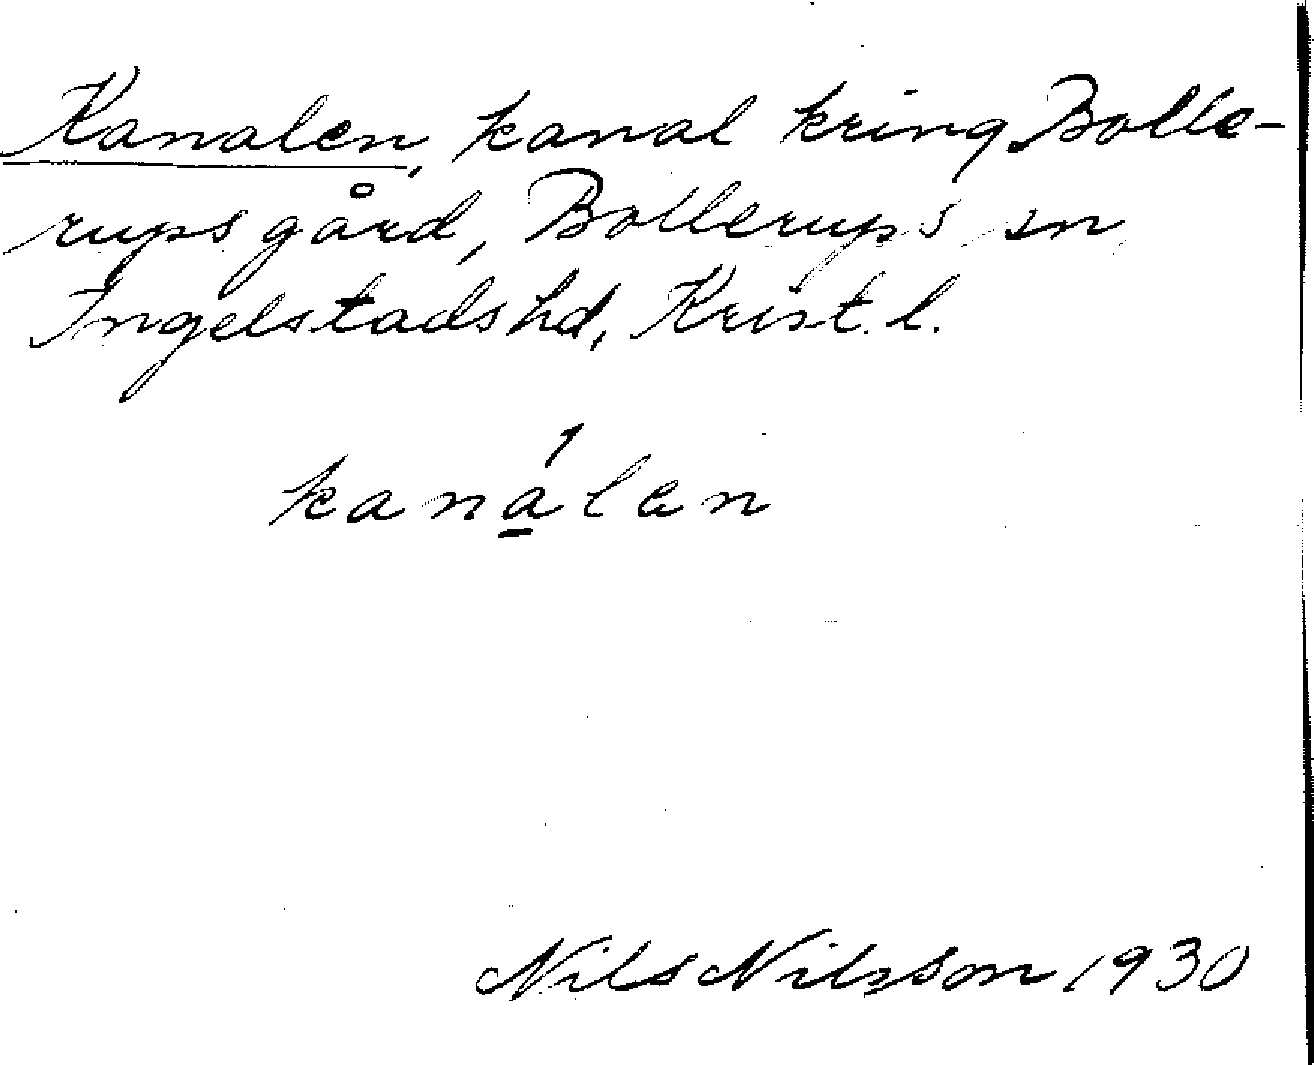 Kanalen, kanal kring Bolle-
rupsgård, Bollerups sn
Ingelstads hd, Krist. l.
kaná̱len
Nils Nilsson 1930